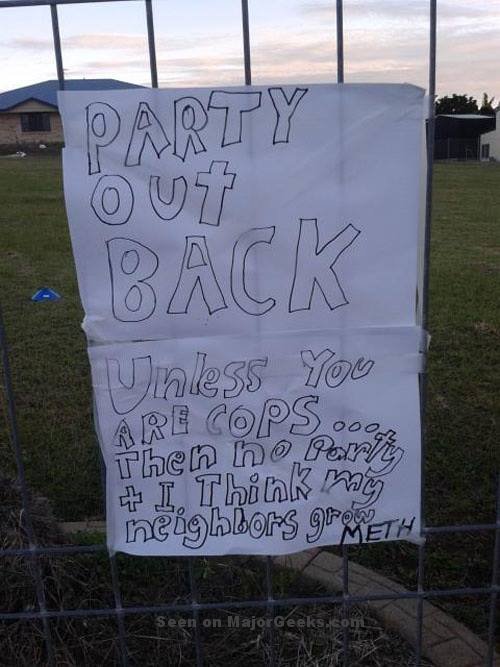 PARTY
OUt
BACK
Unless You
ARE COPS...
then no Party
+ I Think my
neighbors grow
METH
Seen on MajorGeeks.com